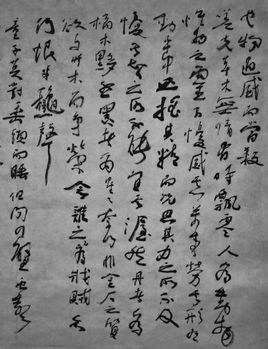 也物過盛而當殺
嗟夫草木無情有時飄零人為動物
惟物之靈百憂感其心萬事勞其形有
動乎中必搖其精而況思其力之所不及
憂其智之所不能宜其渥然丹者為
槁木黟然黑者為星星奈何非金石之質
欲與艸木而爭榮念誰之為戕賊亦
何恨乎龝聲
童子莫對垂頭而睡但聞四壁蟲聲